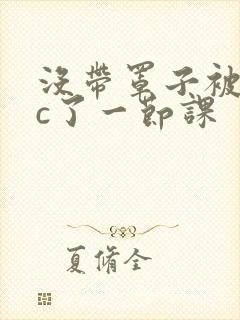 没带罩子被
c了一节课
夏脩全